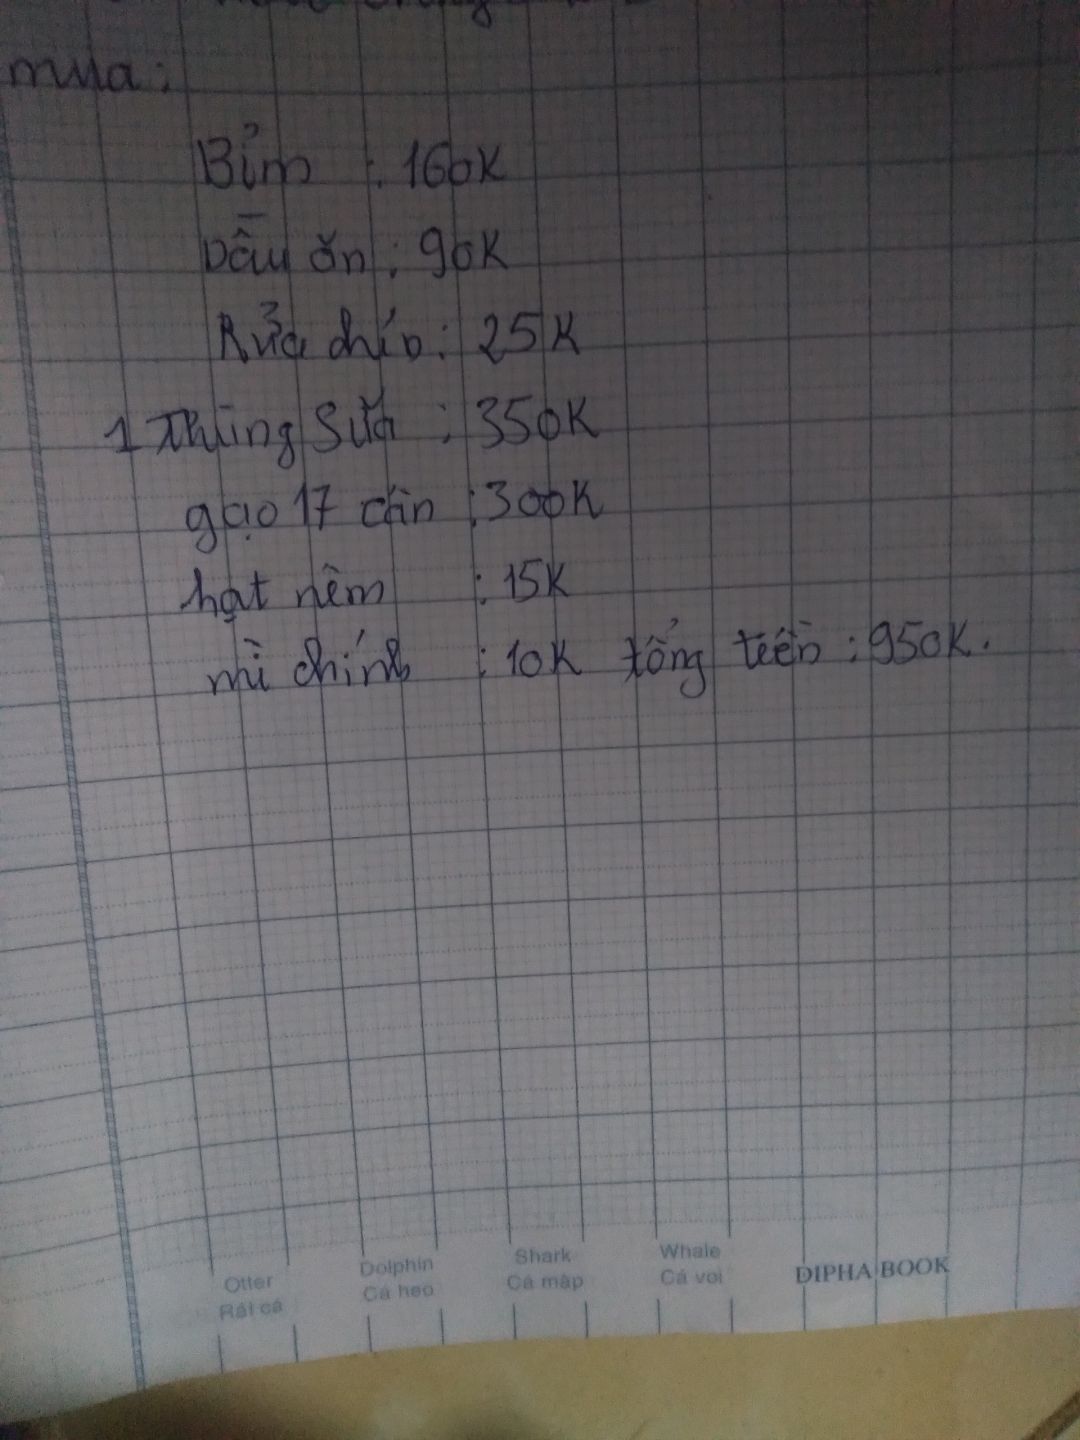 mua:
Bỉm : 160K
Dầu ăn : 90K
Rửa chén : 25K
1 Thùng Sữa : 350K
gạo 17 cân : 300K
hạt nêm : 15K
mì chính : 10K tổng tiền : 950K.
Otter Dolphin Shark Whale DIPHA BOOK
Rái cá Cá heo Cá mập Cá voi